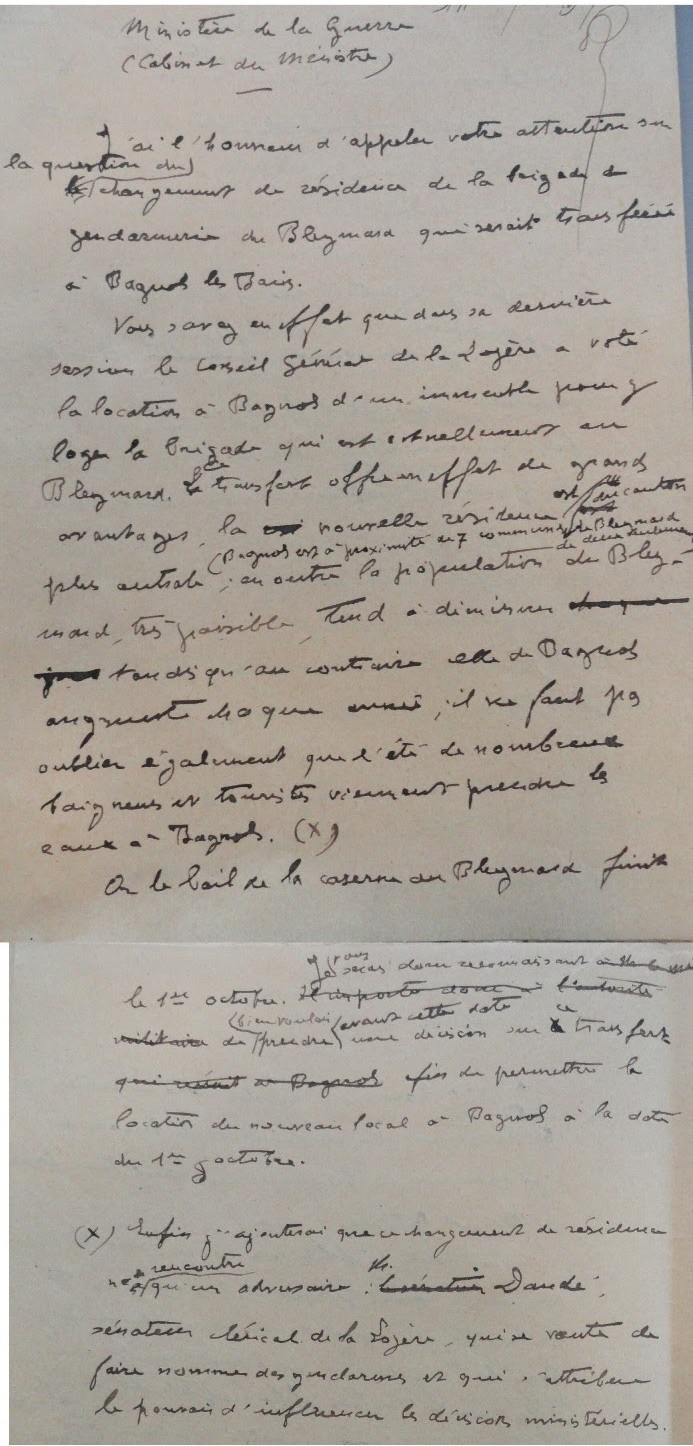 Ministère de la Guerre
(Cabinet du Ministre)
J'ai l'honneur d'appeler votre attention sur
la question du
le changement de résidence de la brigade de
gendarmerie du Bleymard qui serait transférée
à Bagnols les Bains.
Vous savez en effet que dans sa dernière
session le Conseil Général de la Lozère a voté
la location à Bagnols d'un immeuble pour y
loger la brigade qui est actuellement au
Bleymard. Ce transfert offre en effet de grands
avantages, la nouvelle résidence est du canton
(Bagnols est à proximité de 7 communes, le Bleymard de deux seulement
plus centrale ; en outre la population du Bley-
mard, très paisible, tend à diminuer chaque
jour tandis qu'au contraire celle de Bagnols
augmente chaque année ; il ne faut pas
oublier également que l'été de nombreux
baigneurs et touristes viennent prendre les
eaux à Bagnols. (X)
Or le bail de la caserne du Bleymard finit
Je vous serais donc reconnaissant
le 1er octobre. Il importe donc à l'autorité
(bien vouloir avant cette date ce
militaire de prendre une décision sur le transfert
qui réunit à Bagnols afin de permettre la
location du nouveau local à Bagnols à la date
du 1er octobre.
(X) Enfin j'ajouterai que ce changement de résidence
rencontre M.
n'a qu'un adversaire : le sénateur Daudé,
sénateur clérical de la Lozère, qui se vante de
faire nommer des gendarmes et qui s'attribue
le pouvoir d'influencer les décisions ministérielles.